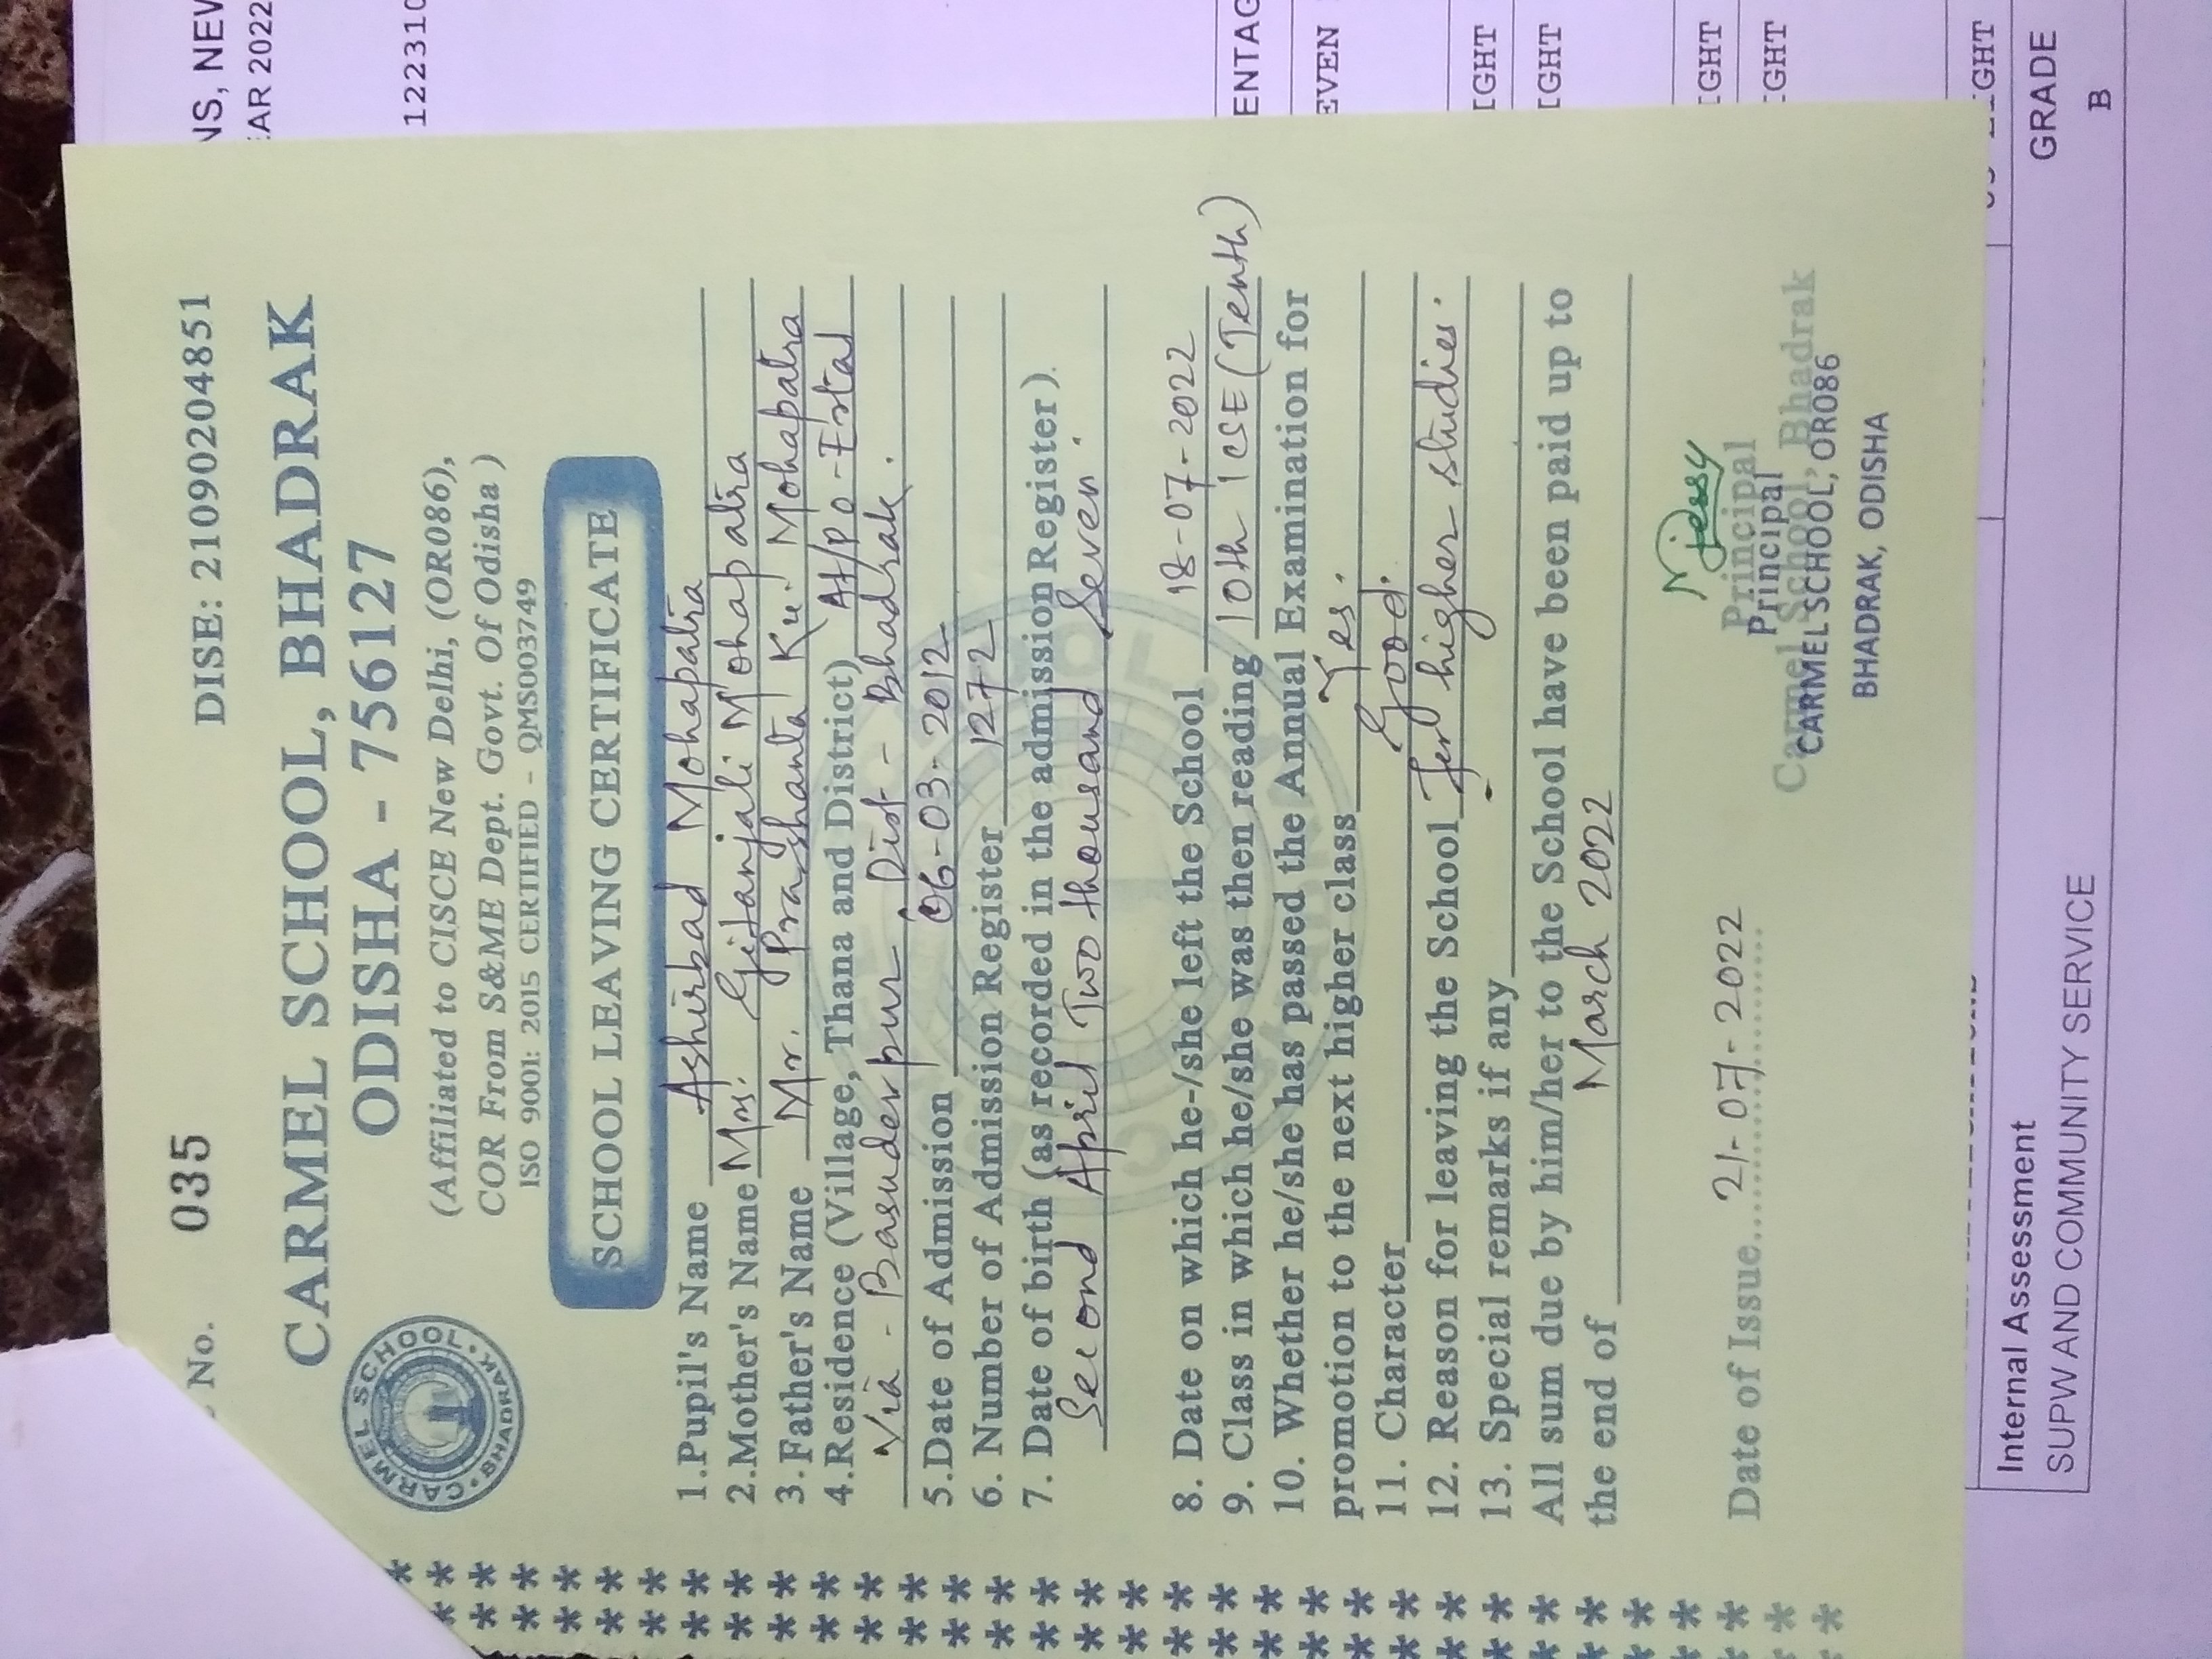 NS, NEW
EAR 2022
122310
No. 035
DISE: 21090204851
CARMEL SCHOOL, BHADRAK
ODISHA - 756127
(Affiliated to CISCE New Delhi, (OR086),
COR From S&ME Dept. Govt. Of Odisha )
ISO 9001: 2015 CERTIFIED - QMS003749
CARMEL SCHOOL
BHADRAK
SCHOOL LEAVING CERTIFICATE
1.Pupil's Name Ashirbad Mohapatra
2.Mother's Name Mrs. Gitanjali Mohapatra
3.Father's Name Mr. Prashanta Ku. Mohapatra
4.Residence (Village, Thana and District) At/Po-
Via - Basuderpur Dist - Bhadrak.
5.Date of Admission 06-03-2012
6. Number of Admission Register 1272
7. Date of birth (as recorded in the admission Register).
Second April Two thousand Seven.
8. Date on which he-/she left the School 18-07-2022
9. Class in which he/she was then reading 10th ICSE (Tenth)
10. Whether he/she has passed the Annual Examination for
promotion to the next higher class Yes.
11. Character Good.
12. Reason for leaving the School for higher studies.
13. Special remarks if any -
All sum due by him/her to the School have been paid up to
the end of March 2022
Date of Issue 21-07-2022
Principal
Carmel School, Bhadrak
Principal
CARMEL SCHOOL, OR086
BHADRAK, ODISHA
ENTAG
EVEN
IGHT
IGHT
IGHT
IGHT
IGHT
Internal Assessment
GRADE
SUPW AND COMMUNITY SERVICE
B